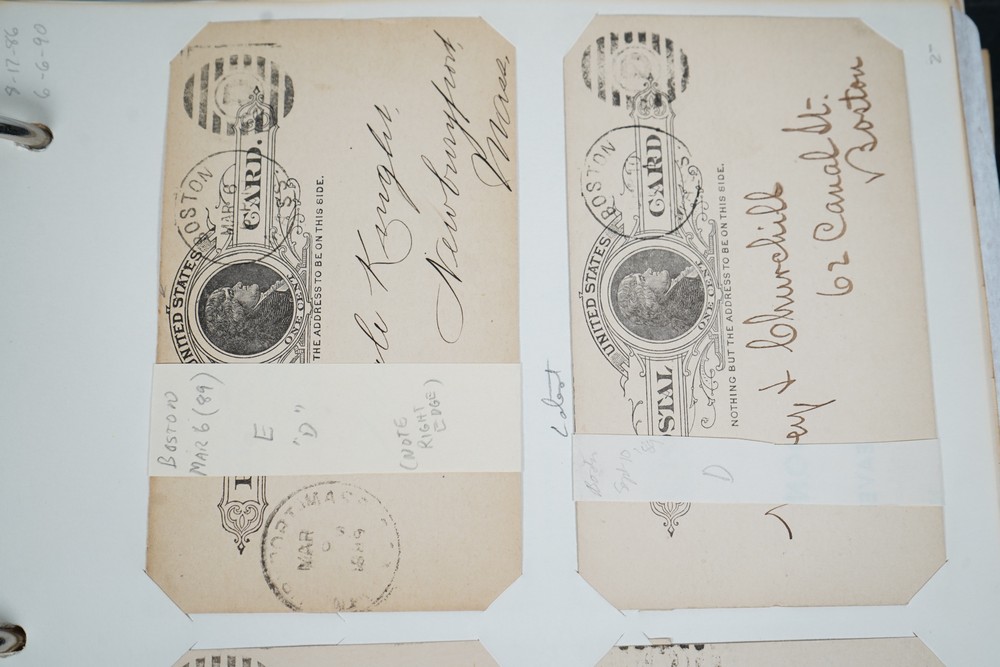 9-17-86
6-6-90
BOSTON
MAR 6
UNITED STATES
CARD.
ONE CENT
THE ADDRESS TO BE ON THIS SIDE.
Knight,
Newburyport,
Mass.
BOSTON
MAR 6 (89)
E
"D"
(NOTE
RIGHT
EDGE)
MASS
MAR
1889
Latest
BOSTON
UNITED STATES
POSTAL CARD
ONE CENT
NOTHING BUT THE ADDRESS TO BE ON THIS SIDE.
ey + Churchill
62 Canal St.
Boston
D
2-